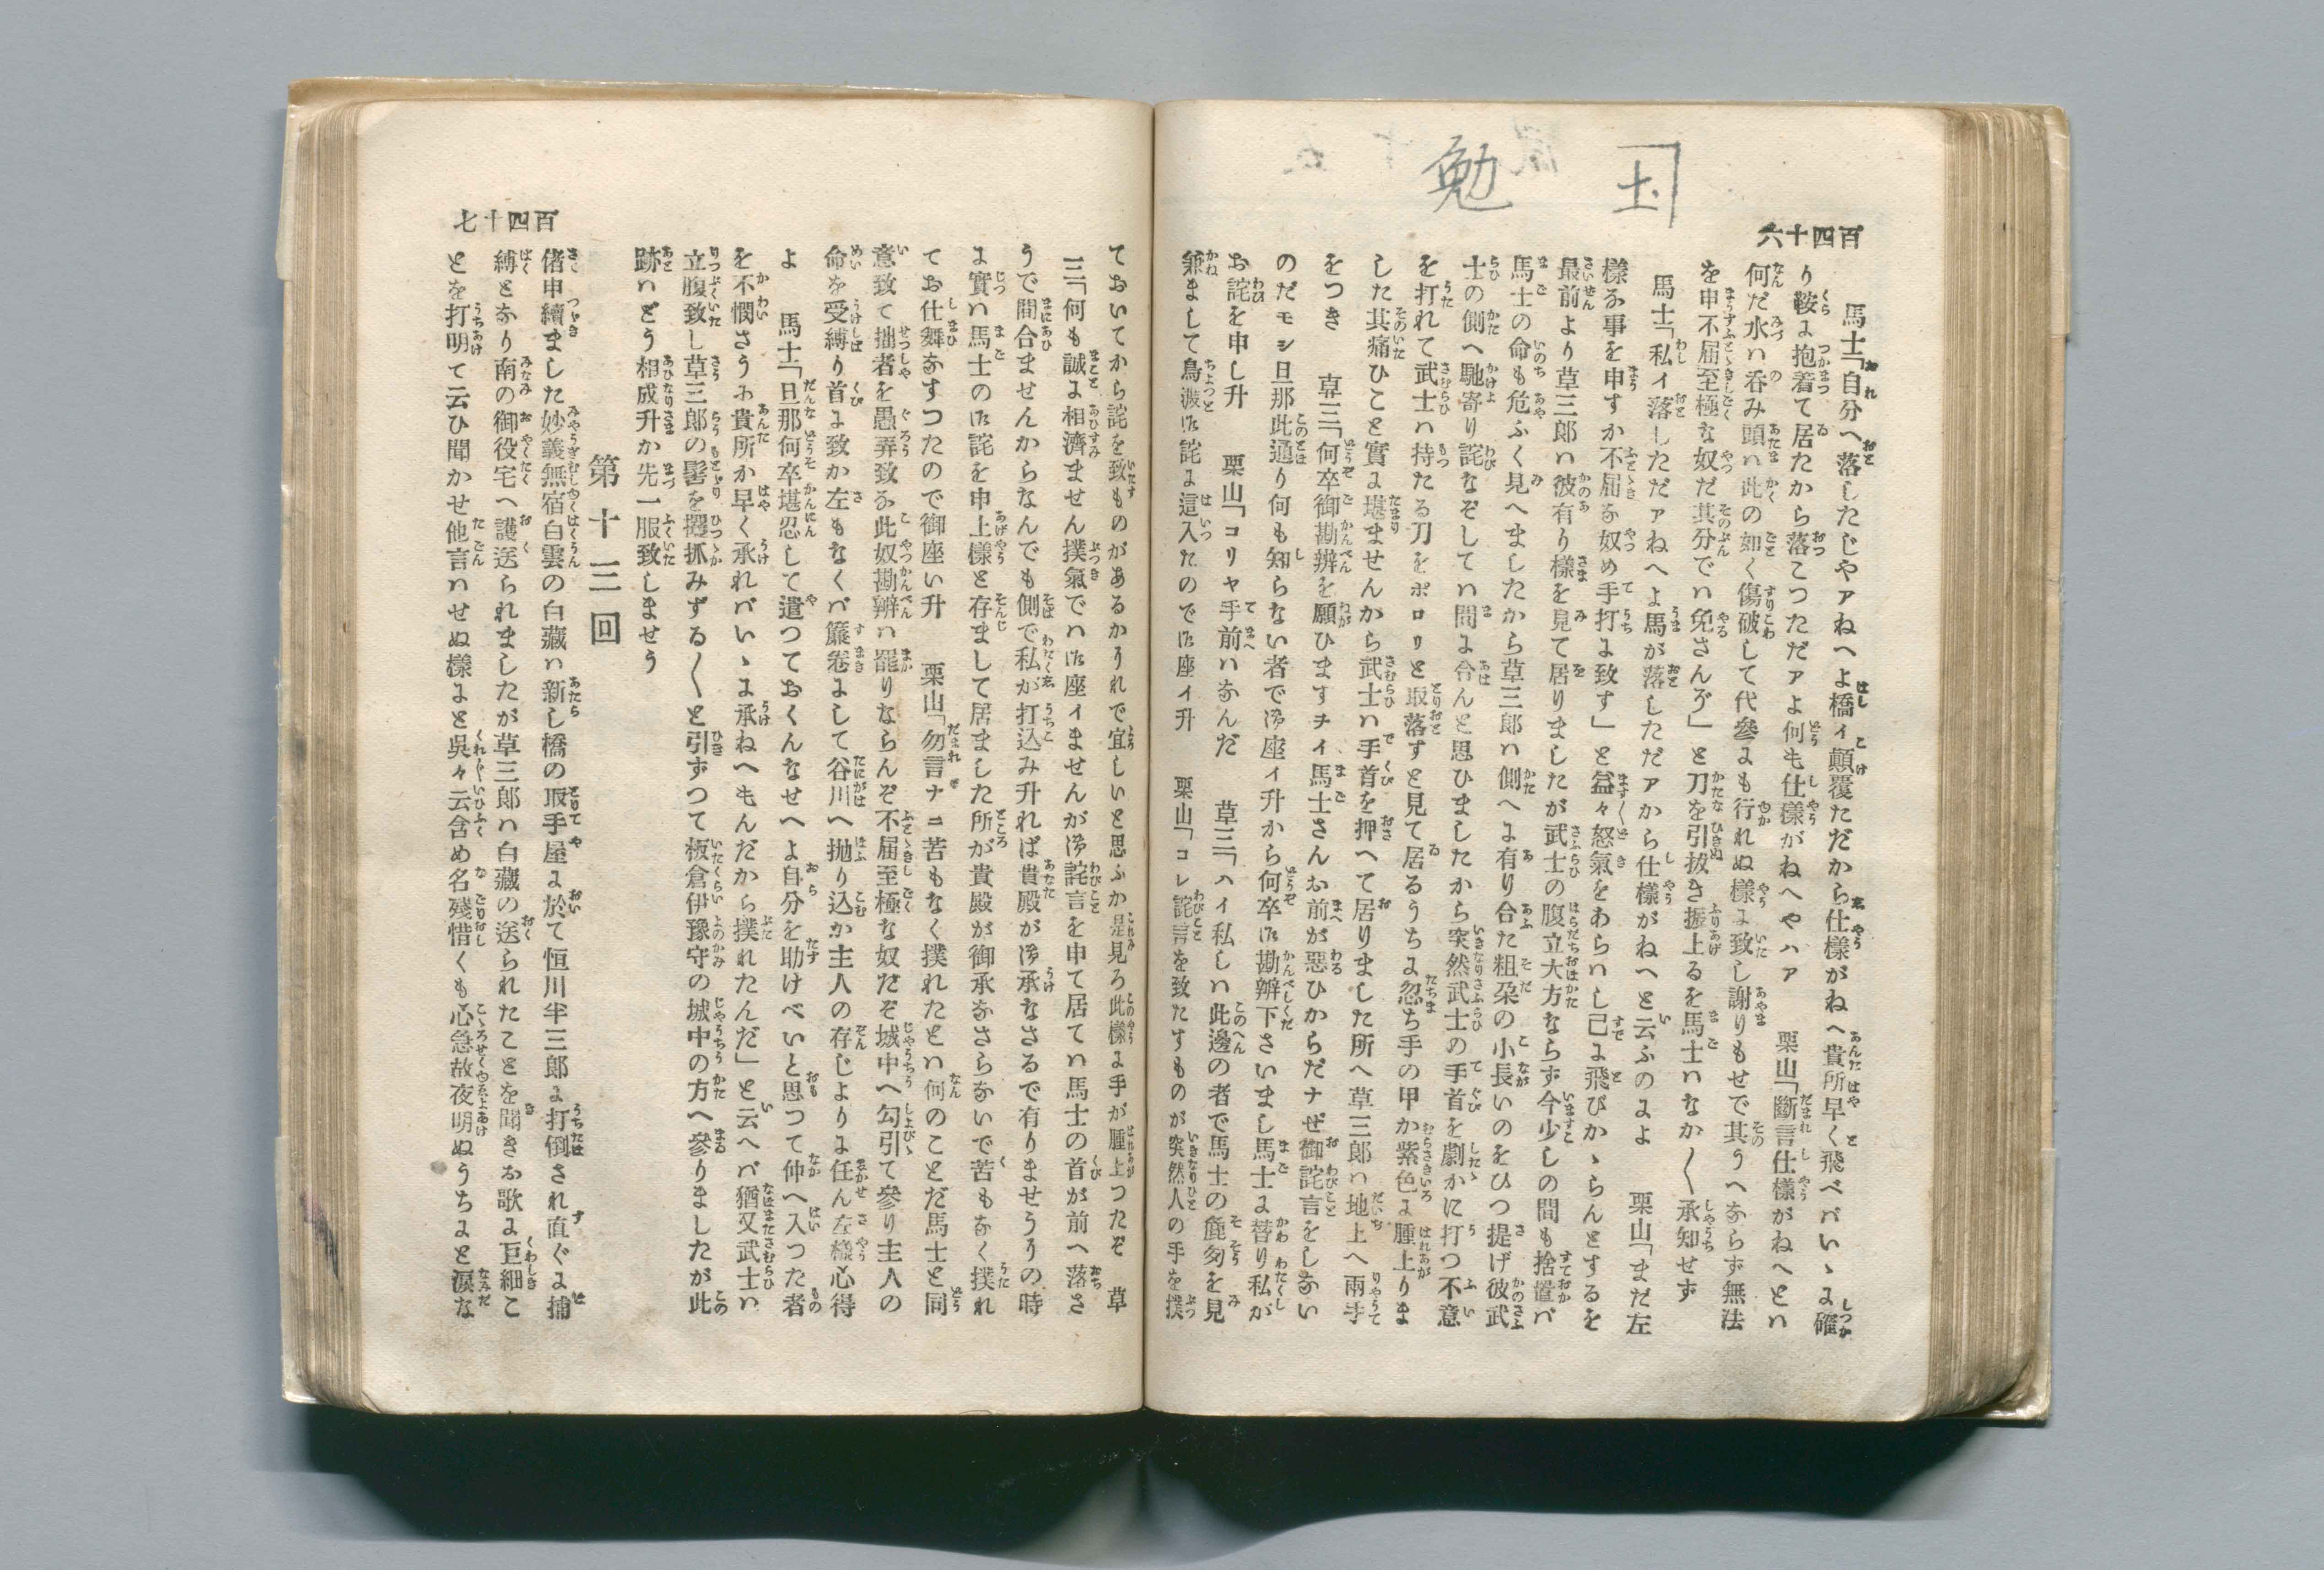 国　勉
百四十六
馬士「自分へ落したじやアねへよ橋ィ顛覆ただから仕樣がねへ貴所早く飛べバいゝに確
り鞍に抱着て居たから落こつただァよ何も仕樣がねへやハァ　栗山「斷言仕樣がねへとハ
何だ水ハ呑み頭ハ此の如く傷破して代參にも行れぬ樣に致し謝りもせで其うへならず無法
を申不届至極な奴だ其分でハ免さんぞ」と刀を引抜き振上るを馬士ハなか〱承知せず
馬士「私イ落しただァねへよ馬が落しただァから仕樣がねへと云ふのによ　栗山「まだ左
樣な事を申すか不届な奴め手打に致す」と益々怒氣をあらハし已に飛びかゝらんとするを
最前より草三郎ハ彼有り樣を見て居りましたが武士の腹立大方ならず今少しの間も捨置バ
馬士の命も危ふく見へましたから草三郎ハ側へに有り合た粗朶の小長いのをひつ提げ彼武
士の側へ馳寄り詫なぞしてハ間に合んと思ひましたから突然武士の手首を劇かに打つ不意
を打れて武士ハ持たる刀をポロリと取落すと見て居るうちに忽ち手の甲か紫色に腫上りま
した其痛ひこと實に堪ませんから武士ハ手首を押へて居りました所へ草三郎ハ地上へ兩手
をつき　草三「何卒御勘辨を願ひますチイ馬士さんお前が惡ひからだナぜ御詫言をしない
のだモシ旦那此通り何も知らない者で御座ィ升から何卒御勘辨下さいまし馬士に替り私が
お詫を申し升　栗山「コリャ手前ハなんだ　草三「ハイ私しハ此邊の者で馬士の麁匆を見
兼まして鳥渡御詫に這入たので御座ィ升　栗山「コレ詫言を致たすものが突然人の手を撲
百四十七
ておいてから詫を致ものがあるかそれで宜しいと思ふか是見ろ此樣に手が腫上つたぞ　草
三「何も誠に相濟ません撲氣でハ御座ィませんが御詫言を申て居てハ馬士の首が前へ落さ
うで間合ませんからなんでも側で私が打込み升れば貴殿が御承なさるで有りませうその時
に實ハ馬士の御詫を申上樣と存まして居ました所が貴殿が御承なさらないで苦もなく撲れ
てお仕舞なすつたので御座い升　栗山「勿言ナニ苦もなく撲れたとハ何のことだ馬士と同
意致て拙者を愚弄致な此奴勘辨ハ罷りならんぞ不届至極な奴だぞ城中へ勾引て參り主人の
命を受縛り首に致か左もなくバ簾卷にして谷川へ抛り込か主人の存じよりに任ん左樣心得
よ　馬士「旦那何卒堪忍して遣つておくんなせへよ自分を助けべいと思つて仲へ入つた者
を不憫さうに貴所か早く承れバいゝに承ねへもんだから撲れたんだ」と云へバ猶又武士ハ
立腹致し草三郎の髻を攫抓みずる〱と引ずつて板倉伊豫守の城中の方へ參りましたが此
跡ハどう相成升か先一服致しませう
第十三回
偖申續ました妙義無宿白雲の白藏ハ新し橋の取手屋に於て恒川半三郎に打倒され直ぐに捕
縛となり南の御役宅へ護送られましたが草三郎ハ白藏の送られたことを聞きお歌に巨細こ
とを打明て云ひ聞かせ他言ハせぬ樣にと呉々云含め名殘惜くも心急故夜明ぬうちにと涙な